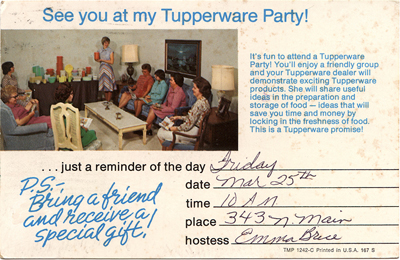 See you at my Tupperware Party!
It's fun to attend a Tupperware
Party! You'll enjoy a friendly group
and your Tupperware dealer will
demonstrate exciting Tupperware
products. She will share useful
ideas in the preparation and
storage of food — ideas that will
save you time and money by
locking in the freshness of food.
This is a Tupperware promise!
. . . just a reminder of the day Friday
date Mar 25th
time 10 AM
place 343 N Main
hostess Emma Bruce
P.S.-,
Bring a friend
and receive a
special gift!
TMP 1242-C Printed in U.S.A. 167 S